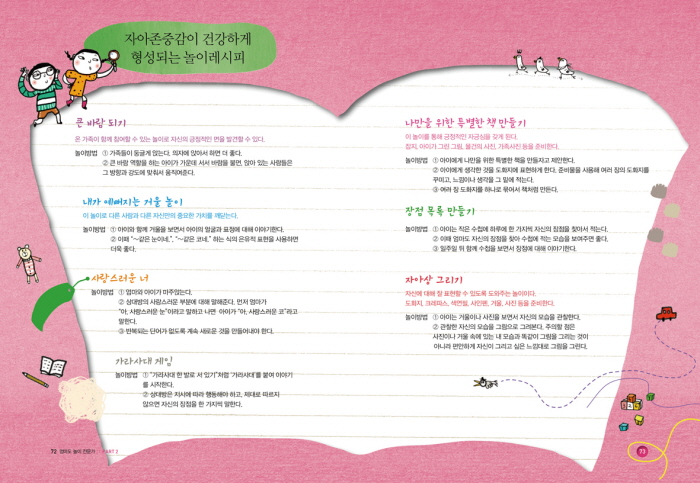 자아존중감이 건강하게
형성되는 놀이레시피
큰 바람 되기
온 가족이 함께 참여할 수 있는 놀이로 자신의 긍정적인 면을 발견할 수 있다.
놀이방법 ① 가족들이 둥글게 앉는다. 의자에 앉아서 하면 더 좋다.
② 큰 바람 역할을 하는 아이가 가운데 서서 바람을 불면, 앉아 있는 사람들은
그 방향과 강도에 맞춰서 움직여준다.
내가 예뻐지는 거울 놀이
이 놀이로 다른 사람과 다른 자신만의 중요한 가치를 깨닫는다.
놀이방법 ① 아이와 함께 거울을 보면서 아이의 얼굴과 표정에 대해 이야기한다.
② 이때 “~같은 눈이네.”, “~같은 코네.” 하는 식의 은유적 표현을 사용하면
더욱 좋다.
사랑스러운 너
놀이방법 ① 엄마와 아이가 마주앉는다.
② 상대방의 사랑스러운 부분에 대해 말해준다. 먼저 엄마가
“아, 사랑스러운 눈”이라고 말하고 나면 아이가 “아, 사랑스러운 코”라고
말한다.
③ 반복되는 단어가 없도록 계속 새로운 것을 만들어내야 한다.
가라사대 게임
놀이방법 ① “가라사대 한 발로 서 있기”처럼 ‘가라사대’를 붙여 이야기
를 시작한다.
② 상대방은 지시에 따라 행동해야 하고, 제대로 따르지
않으면 자신의 장점을 한 가지씩 말한다.
72 엄마도 놀이 전문가 PART 2
나만을 위한 특별한 책 만들기
이 놀이를 통해 긍정적인 자긍심을 갖게 한다.
잡지, 아이가 그린 그림, 물건의 사진, 가족사진 등을 준비한다.
놀이방법 ① 아이에게 나만을 위한 특별한 책을 만들자고 제안한다.
② 아이에게 생각한 것을 도화지에 표현하게 한다. 준비물을 사용해 여러 장의 도화지를
꾸미고, 느낌이나 생각을 그 밑에 적는다.
③ 여러 장 도화지를 하나로 묶어서 책처럼 만든다.
장점 목록 만들기
놀이방법 ① 아이는 작은 수첩에 하루에 한 가지씩 자신의 장점을 찾아서 적는다.
② 이때 엄마도 자신의 장점을 찾아 수첩에 적는 모습을 보여주면 좋다.
③ 일주일 뒤 함께 수첩을 보면서 장점에 대해 이야기한다.
자아상 그리기
자신에 대해 잘 표현할 수 있도록 도와주는 놀이이다.
도화지, 크레파스, 색연필, 사인펜, 거울, 사진 등을 준비한다.
놀이방법 ① 아이는 거울이나 사진을 보면서 자신의 모습을 관찰한다.
② 관찰한 자신의 모습을 그림으로 그려본다. 주의할 점은
사진이나 거울 속에 있는 내 모습과 똑같이 그림을 그리는 것이
아니라 편안하게 자신이 그리고 싶은 느낌대로 그림을 그린다.
73